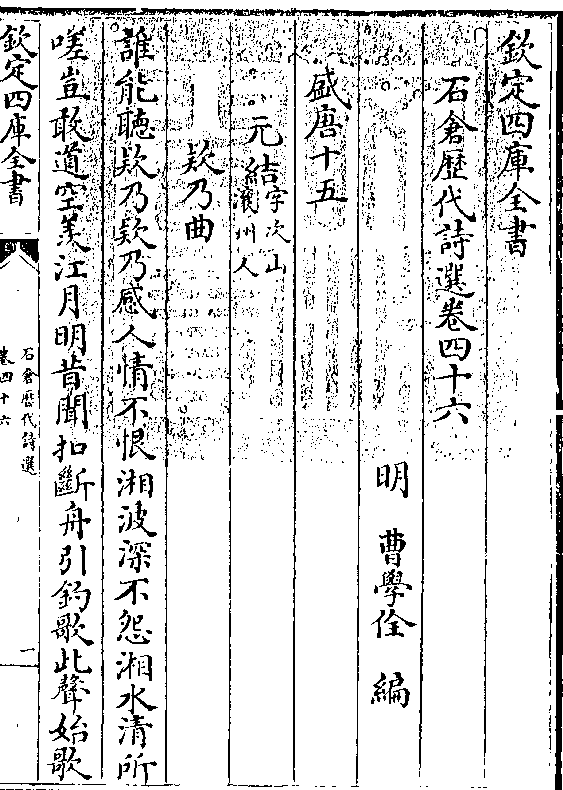 欽定四庫全書
石倉歷代詩選卷四十六
明 曹學佺 編
盛唐十五
元結字次山
㐮州人
欵乃曲
誰能聽欵乃欵乃感人情不恨湘波深不怨湘水清所
嗟豈敢道空羡江月明昔聞扣斷舟引釣歌此聲始歌
欽定四庫全書
石倉歷代詩選
卷四十六
一